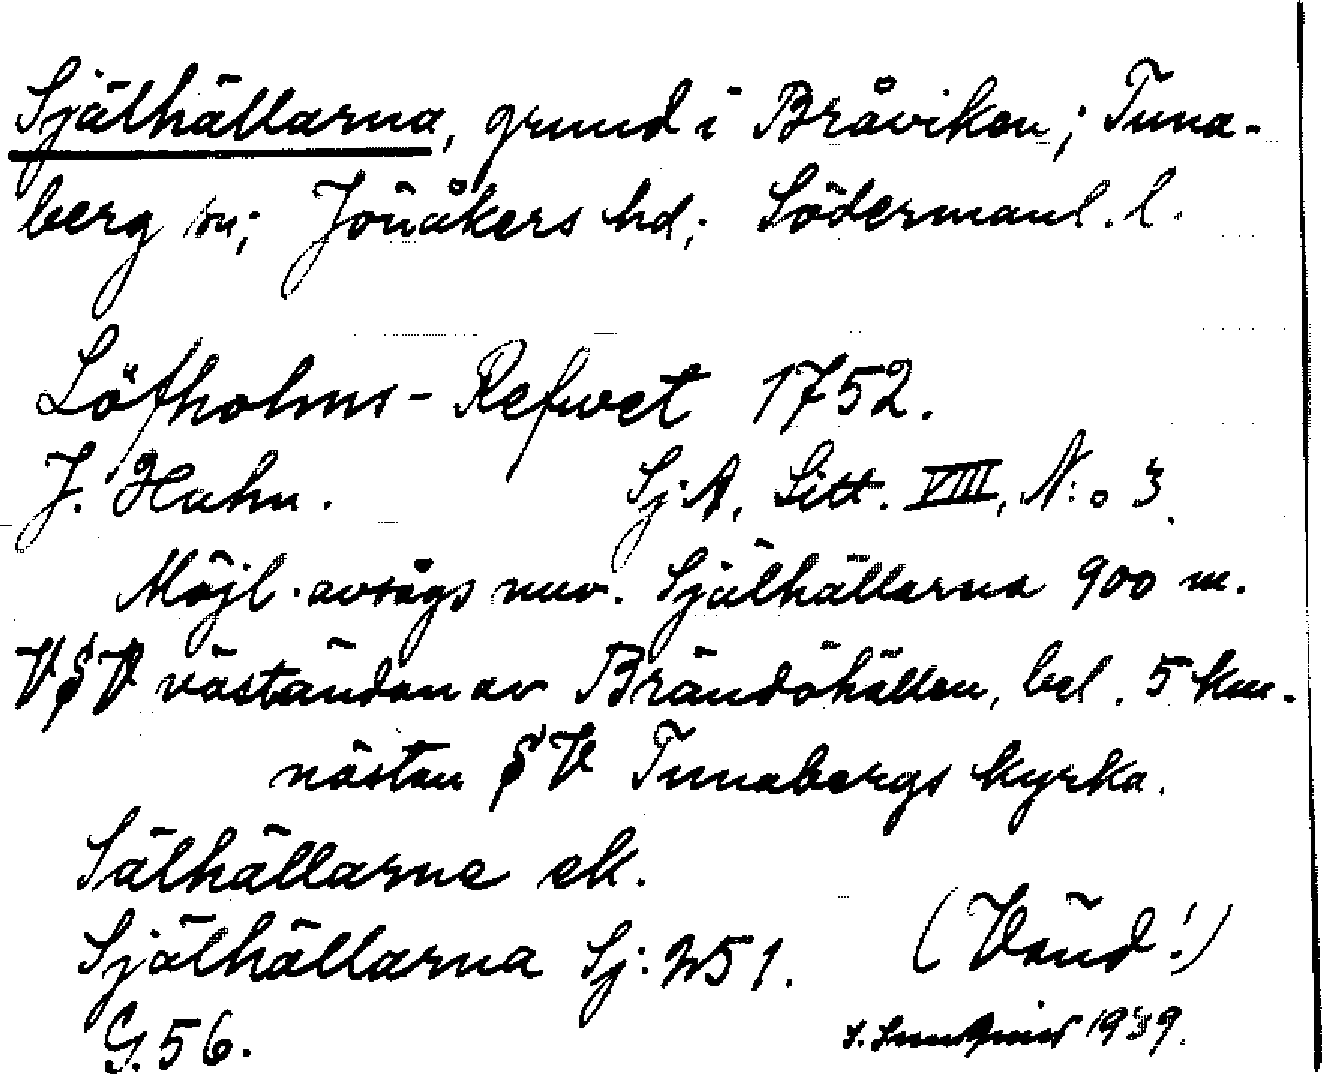 Själhällarna, grund i Bråviken; Tuna-
berg sn; Jönåkers hd; Södermanl. l.
Löfholms-Refwet 1752.
J. Hahn. Sj.A. Litt. VIII, N:o 3.
Möjl. avsågs nuv. Själhällarna 900 m.
VSV väständan av Brändöhällen, bel. 5 km.
nästan SV Tunabergs kyrka.
Sälhällarne ek.
Själhällarna Sj: 251. (Vänd!)
G. 56. 1939.